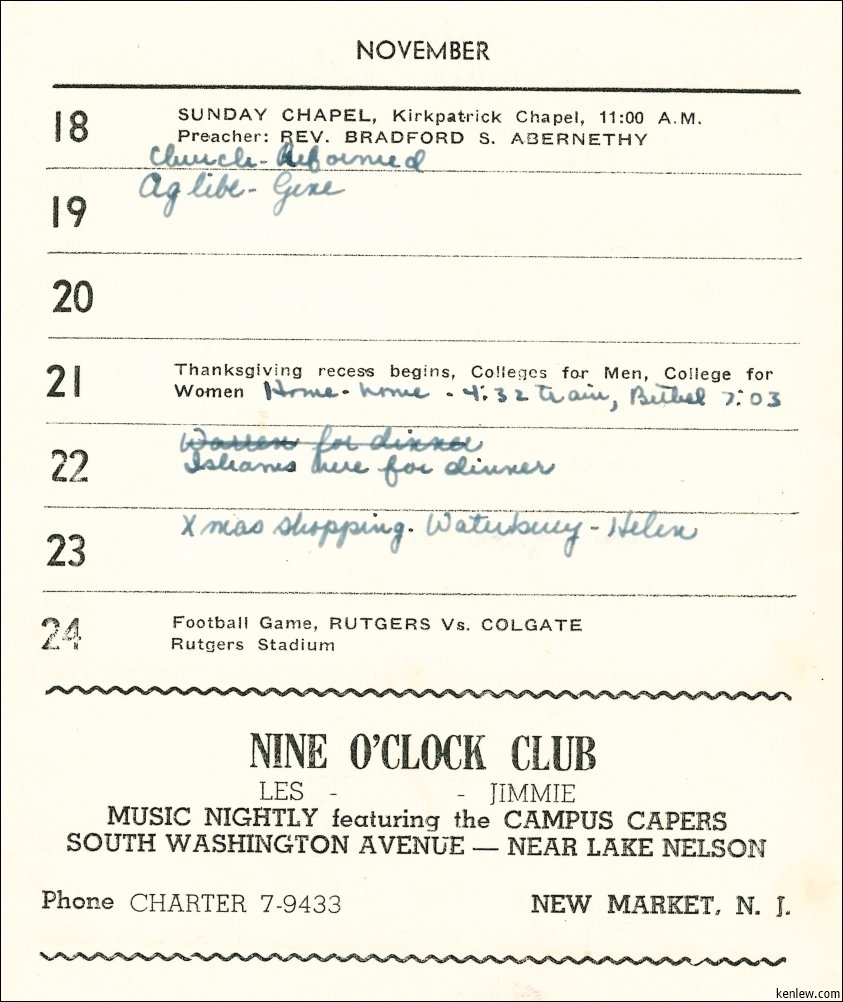 NOVEMBER
18 SUNDAY CHAPEL, Kirkpatrick Chapel, 11:00 A.M.
Preacher: REV. BRADFORD S. ABERNETHY
Church - Reformed
19 Ag libe - Gene
20
21 Thanksgiving recess begins, Colleges for Men, College for
Women Home - home - 4:32 train, Bethel 7:03
22 Warren for dinner
Ishams here for dinner
23 Xmas shopping. Waterbury - Helen
24 Football Game, RUTGERS Vs. COLGATE
Rutgers Stadium
NINE O'CLOCK CLUB
LES - - JIMMIE
MUSIC NIGHTLY featuring the CAMPUS CAPERS
SOUTH WASHINGTON AVENUE — NEAR LAKE NELSON
Phone CHARTER 7-9433 NEW MARKET, N. J.
kenlew.com